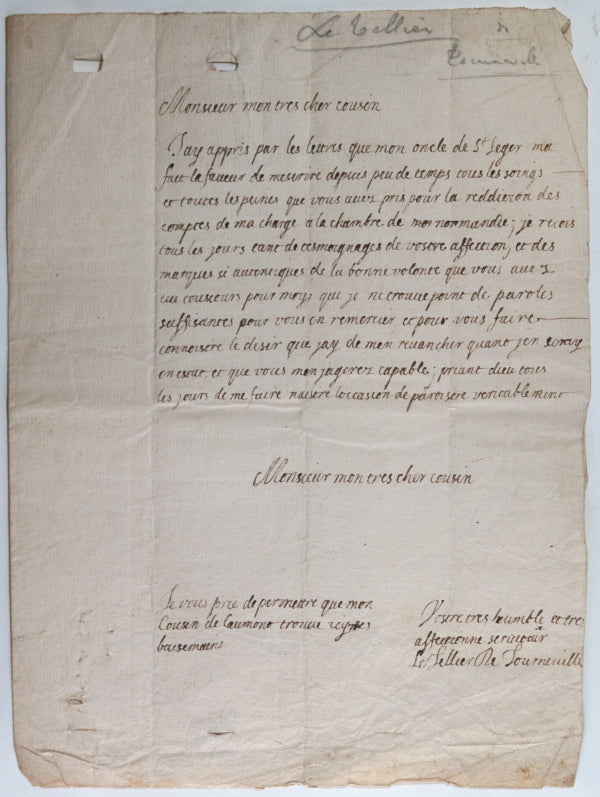 Le Tellier de
Tourneville
Monsieur mon tres cher cousin
Jay appris par les lettres que mon oncle de St Leger ma
fait la faveur de mescrire depuis peu de temps tous les soings
et toutes les peines que vous avez pris pour la reddition des
comptes de ma charge a la chambre de normandie; je recois
tous les jours tant de tesmoignages de vostre affection, et des
marques si autentiques de la bonne volonte que vous avez
eue tousiours pour moy, que je ne trouve point de paroles
suffisantes pour vous en remercier, et pour vous faire
connoistre le desir que jay de men revancher quant jen seray
en estat, et que vous men jugerez capable; priant dieu tous
les jours de me faire naistre loccasion de paroistre veritablement
Monsieur mon tres cher cousin
Je vous prie de permettre que mon
Cousin de Caumont trouve icy mes
baisemains
Vostre tres humble et tres
affectionne serviteur
Le Tellier De Tourneville